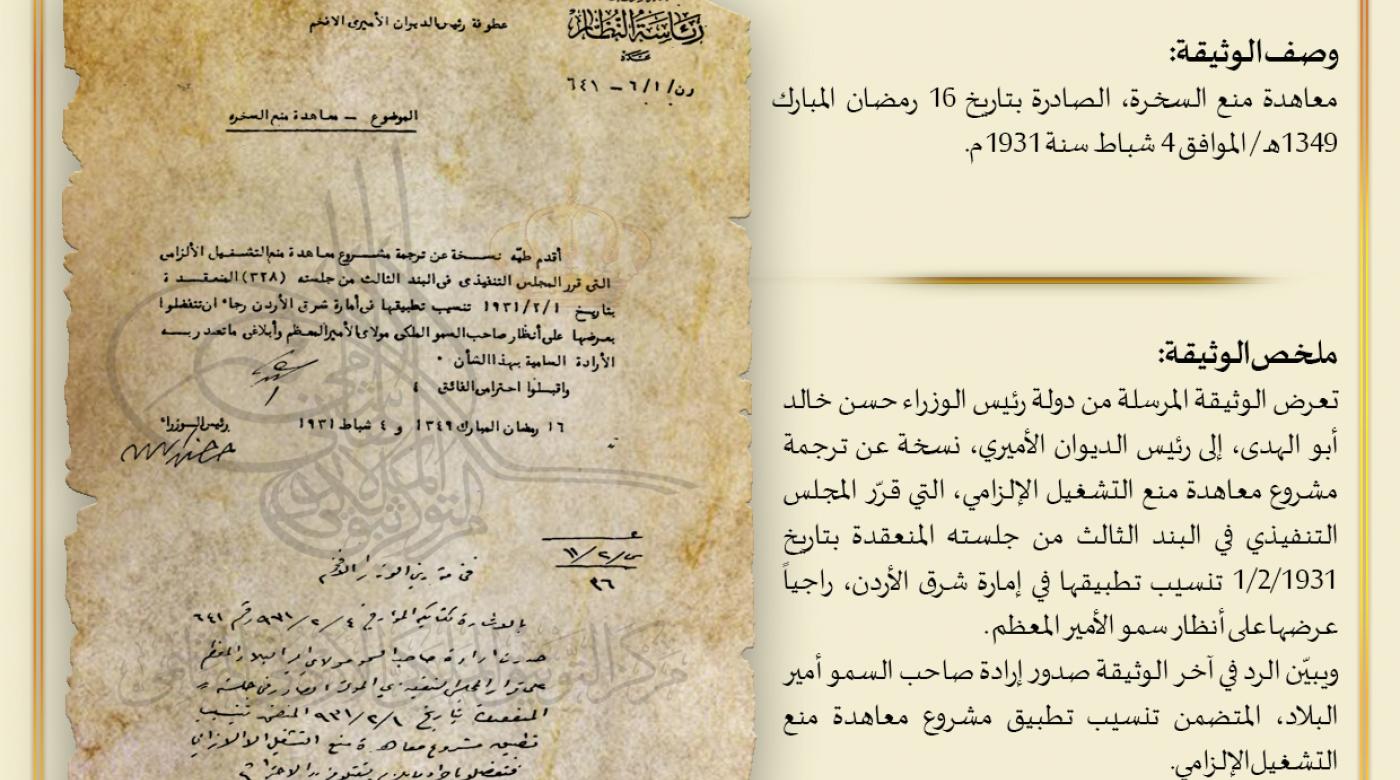 وصف الوثيقة:
معاهدة منع السخرة، الصادرة بتاريخ 16 رمضان المبارك
1349هـ/ الموافق 4 شباط سنة 1931م.
ملخص الوثيقة:
تعرض الوثيقة المرسلة من دولة رئيس الوزراء حسن خالد
أبو الهدى، إلى رئيس الديوان الأميري، نسخة عن ترجمة
مشروع معاهدة منع التشغيل الإلزامي، التي قرّر المجلس
التنفيذي في البند الثالث من جلسته المنعقدة بتاريخ
1/2/1931 تنسيب تطبيقها في إمارة شرق الأردن، راجياً
عرضها على أنظار سمو الأمير المعظم.
ويبيّن الرد في آخر الوثيقة صدور إرادة صاحب السمو أمير
البلاد، المتضمن تنسيب تطبيق مشروع معاهدة منع
التشغيل الإلزامي.
رئاسة النظار
عطوفة رئيس الديوان الأميري الافخم
رن/ ٦/١ – ٦٤١
الموضوع – معاهدة منع السخره
أقدم طيّه نسخة عن ترجمة مشروع معاهدة منع التشغيل الألزامي
التي قرر المجلس التنفيذي في البند الثالث من جلسته (٣٢٨) المنعقدة
بتاريخ ١٩٣١/٢/١ تنسيب تطبيقها في أمارة شرق الأردن رجاء ان تتفضلوا
بعرضها على أنظار صاحب السمو الملكي مولاي الأمير المعظم وأبلاغي ماتصدر به
الأرادة السامية بهذا الشأن ٠
واقبلوا احترامي الفائق ؛
١٦ رمضان المبارك ١٣٤٩ و ٤ شباط ١٩٣١
رئيس الوزراء
٣٦
بالاشارة لكتابكم المؤرخ ٩٣١/٢/٤ رقم ٦٤١
صدرت ارادة صاحب السمو مولاي امير البلاد المعظم
على قرار المجلس التنفيذي الصادر في جلسته
المنعقدة بتاريخ ٩٣١/٢/١ المتضمن تنسيب
تطبيق مشروع معاهدة منع التشغيل الالزامي